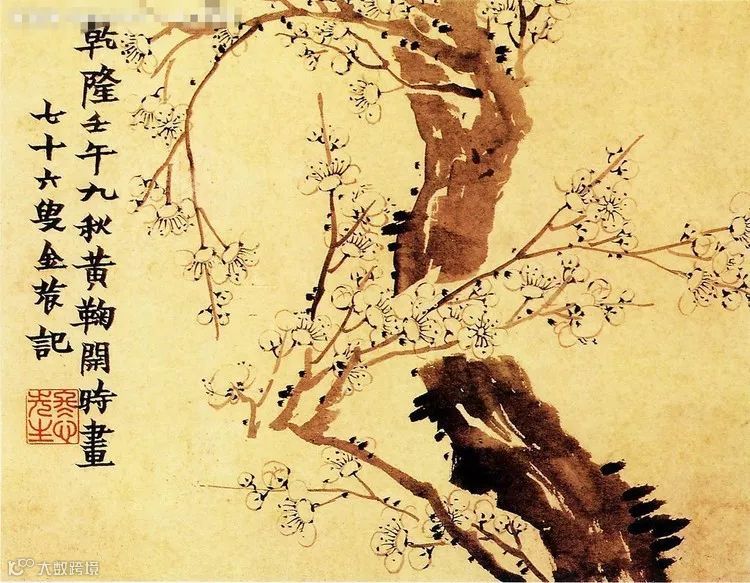 乾隆壬午九秋黄鞠開時畫
七十六叟金農記
冬心先生
大数跨境